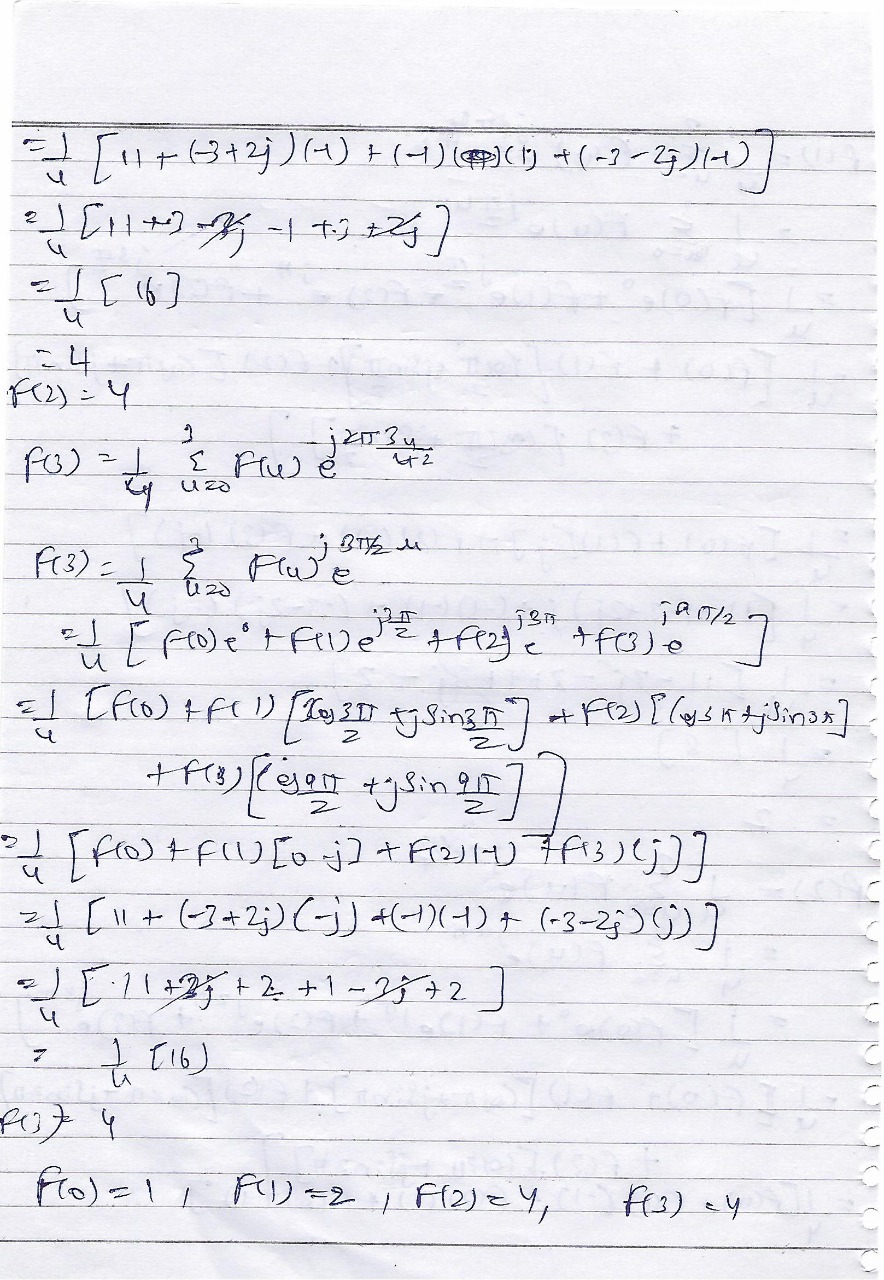 = 1/4 [11 + (-3+2j)(-1) + (-1)(1) + (-3-2j)(-1)]
= 1/4 [11+3-2j -1 +3 +2j]
= 1/4 [16]
= 4
f(2) = 4
f(3) = 1/4 3 Σ u=0 F(u) e j2π3u/4 2
f(3) = 1/4 3 Σ u=0 F(u) e j3π/2 u
= 1/4 [F(0)e° + F(1)e j3π/2 + F(2) e j3π + F(3) e j9π/2]
= 1/4 [F(0) + F(1) [Cos 3π/2 + jSin 3π/2] + F(2) [Cos3π + jSin3π]
+ F(3) [Cos 9π/2 + jSin 9π/2]]
= 1/4 [F(0) + F(1) [0-j] + F(2)(-1) + F(3)(j)]
= 1/4 [11 + (-3+2j)(-j) + (-1)(-1) + (-3-2j)(j)]
= 1/4 [11 +3j + 2 + 1 - 3j + 2]
= 1/4 [16]
f(3) = 4
f(0) = 1, f(1) = 2, f(2) = 4, f(3) = 4